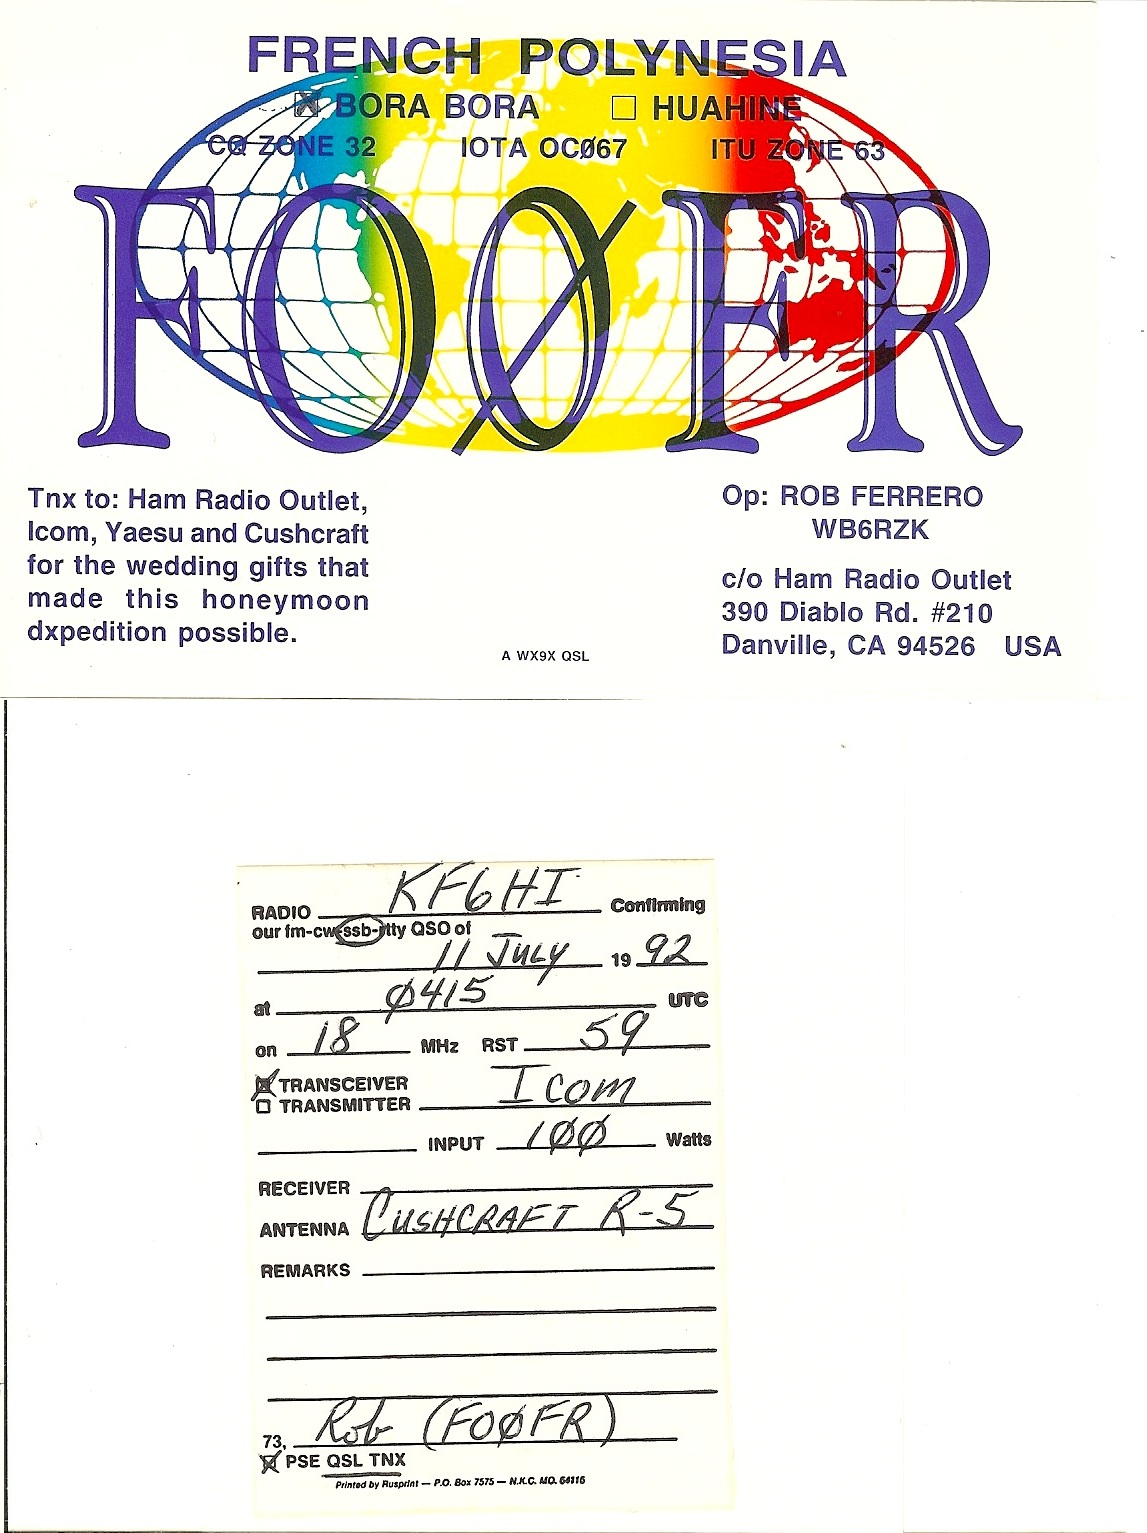 FRENCH POLYNESIA
☒ BORA BORA ☐ HUAHINE
CQ ZONE 32 IOTA OCØ67 ITU ZONE 63
FOØFR
Tnx to: Ham Radio Outlet,
Icom, Yaesu and Cushcraft
for the wedding gifts that
made this honeymoon
dxpedition possible.
Op: ROB FERRERO
WB6RZK
c/o Ham Radio Outlet
390 Diablo Rd. #210
Danville, CA 94526 USA
A WX9X QSL
RADIO KF6HI Confirming
our fm-cw-ssb-rtty QSO of
11 JULY 1992
at Ø415 UTC
on 18 MHz RST 59
☒ TRANSCEIVER
☐ TRANSMITTER Icom
INPUT 1ØØ Watts
RECEIVER
ANTENNA CUSHCRAFT R-5
REMARKS
73, Rob (FOØFR)
☒ PSE QSL TNX
Printed by Rusprint — P.O. Box 7575 — N.K.C. MO. 64116